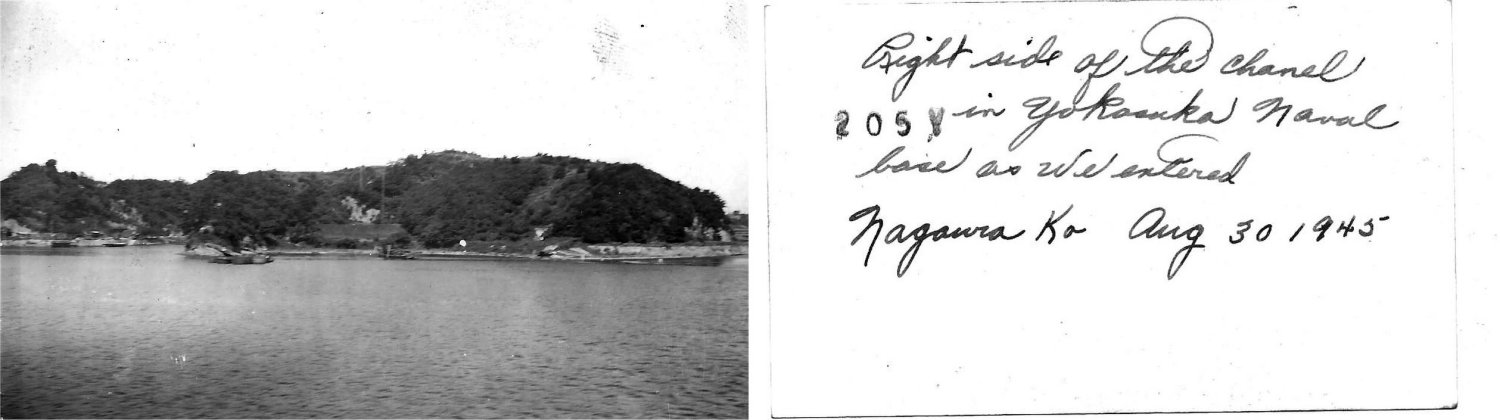 Right side of the chanel
205Y in Yokosuka Naval
base as We entered
Nagawra Ko Aug 30 1945